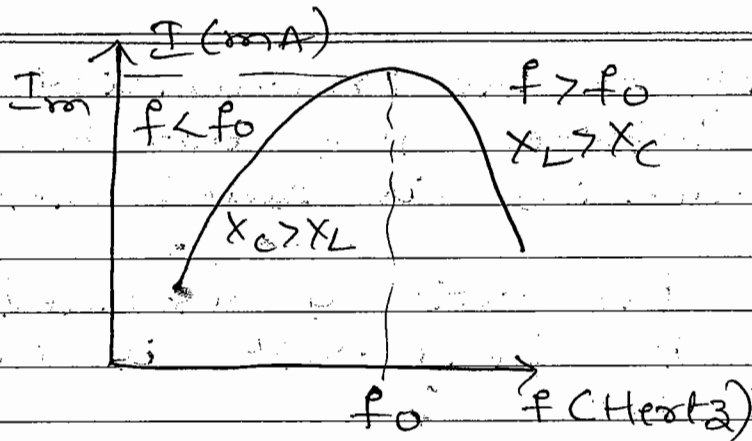 I (mA)
Im
f < fo
f > fo
XL > XC
Xc > XL
fo
f (Hertz)